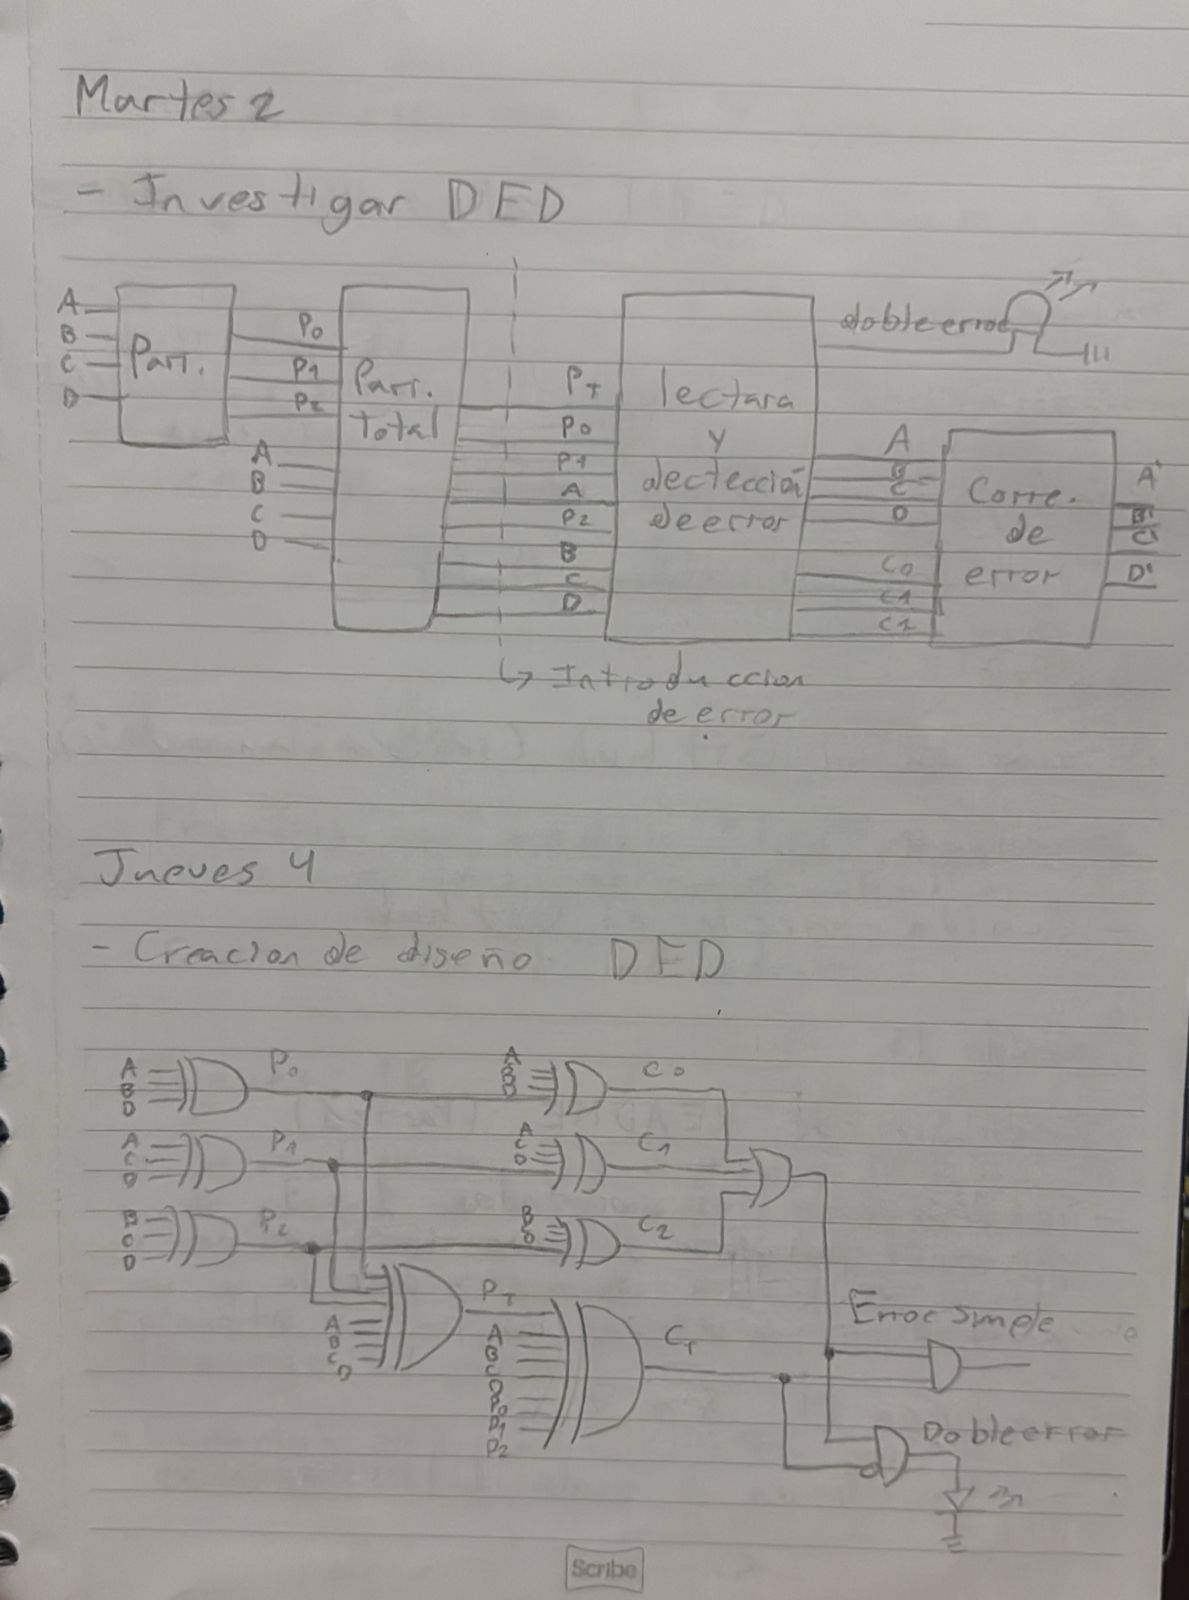 Martes 2
- Investigar DED
A
B
C
D
Pari.
P0
P1
P2
A
B
C
D
Pari.
total
PT
P0
P1
A
P2
B
C
D
lectura
y
dectección
de error
doble error
A
B
C
D
C0
C1
C2
Corre.
de
error
A'
B'
C'
D'
↳ Introduccion
de error
Jueves 4
- Creacion de diseño DED
A
B
D
P0
A
B
D
C0
A
C
D
P1
A
C
D
C1
B
C
D
P2
B
D
C2
A
B
C
D
PT
A
B
C
D
P0
P1
P2
CT
Error simple
Doble error
Scribe